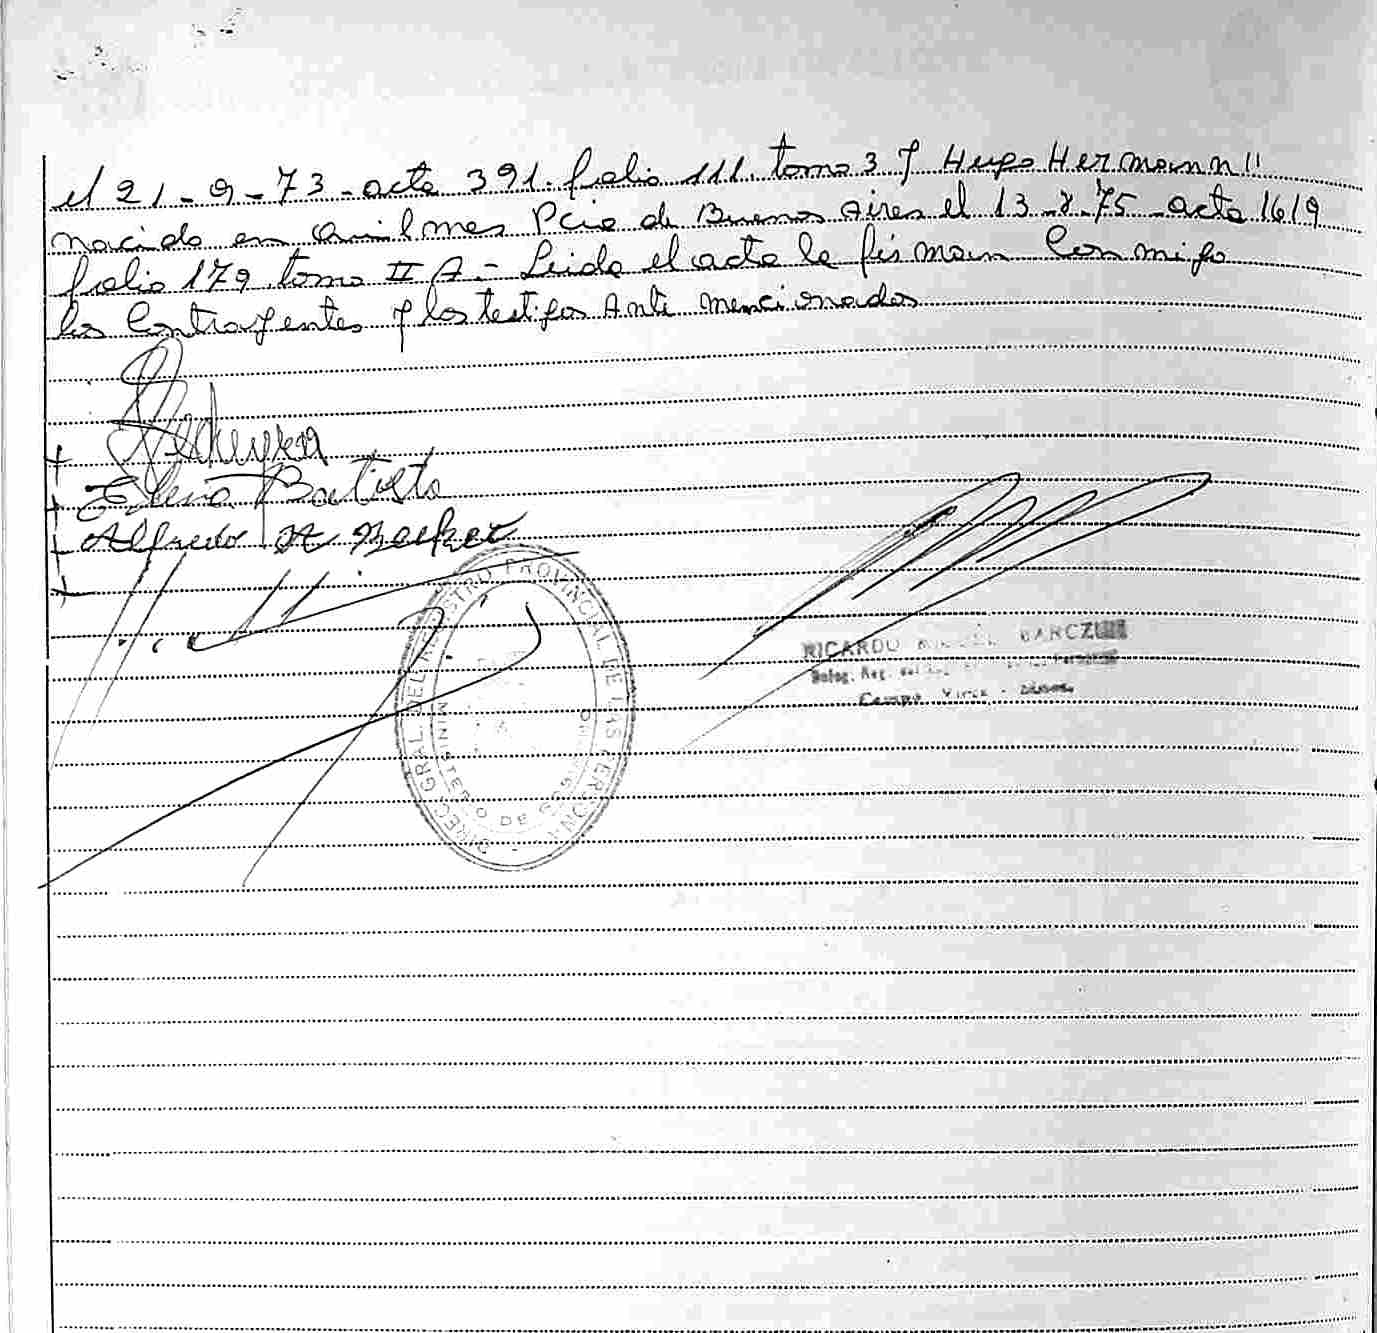 el 21-9-73-acta 391. folio 111. tomo 3 y Hugo Hermann "
nacido en Quilmes Pcia de Buenos Aires el 13-8-75-acta 1619
folio 179 tomo II A.- Leida el acta la firman conmigo
los Contrayentes y los testigos Ante mencionados
Elena Batista
Alfredo A Becker
DIREC. GRAL. DEL REGISTRO PROVINCIAL DE LAS PERSONAS
MINISTERIO DE GOBIERNO
RICARDO MIGUEL BARCZUK
Deleg. Reg.
Campo Viera -